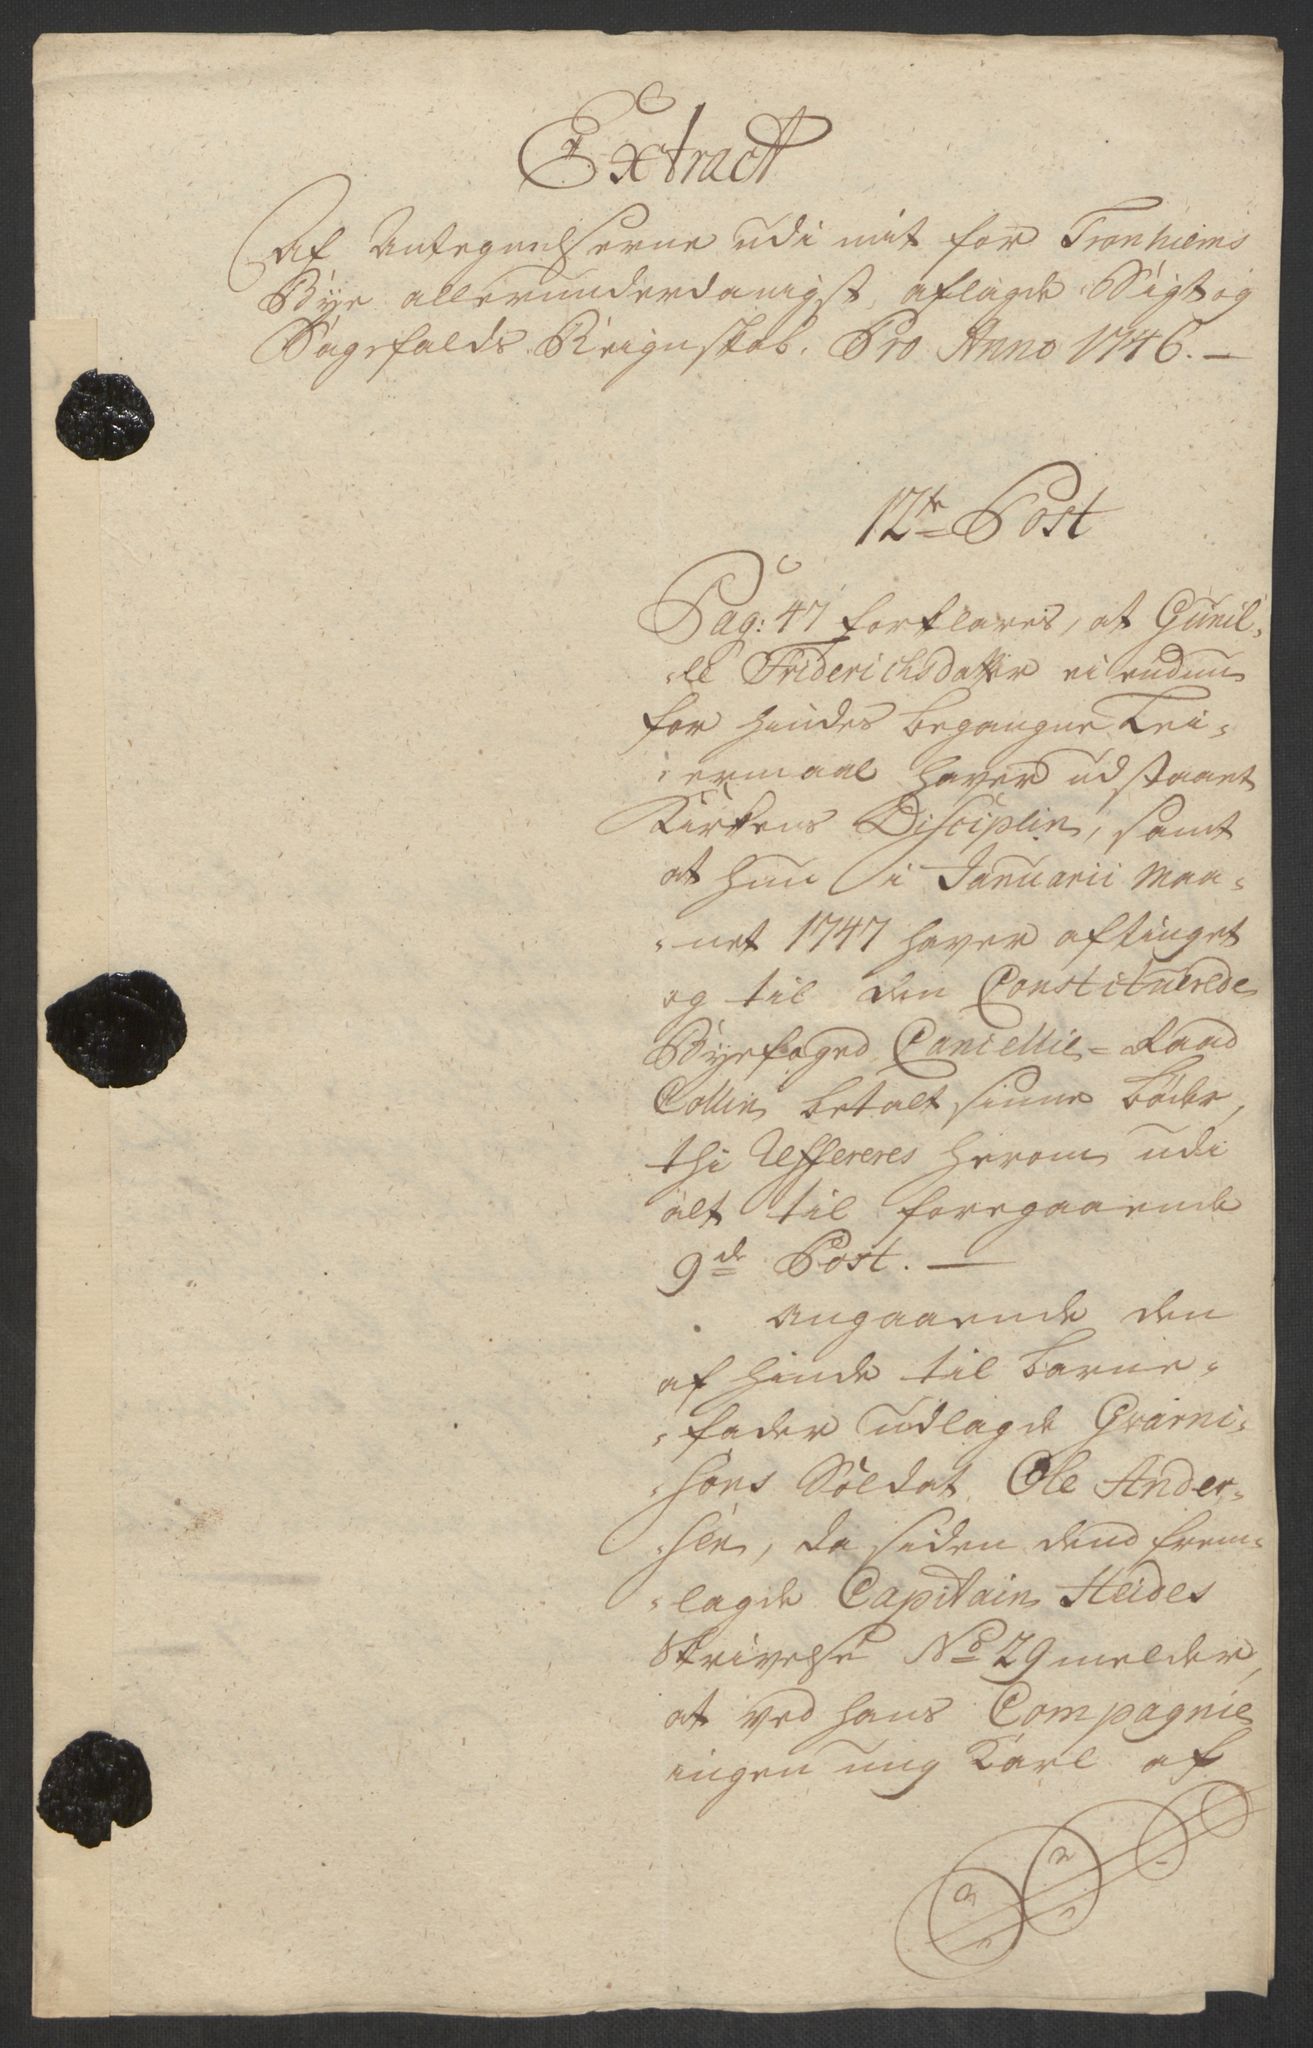 Extract
Af Antegnelserne udi mit for Tronhiems
Bye allerunderdanigst aflagde Sigt og
Sagefalds Reignskab. Pro Anno 1746. —
12te Post
Pag: 47 forklares, at Gunil-
-le Friderichsdatter ei endnu
for hindes begangne Lei-
-ermaal haver udstaaet
Kirkens Disciplin, samt
at hun i Januarii Maa-
-net 1747 haver aftinget
og til den Constituerede
Byefoged Cancellie-Raad
Collin betalt sinne bøder,
thi Refereres herom udi
alt til foregaaende
9de Post. —
Angaaende den
af hinde til barne-
-fader udlagde Guarni-
-sons Soldat Ole Ander-
-sen, da siden dend frem-
-lagde Capitain Heides
Skrivelse No 29 melder,
at ved hans Compagnie
ingen ung Karl af